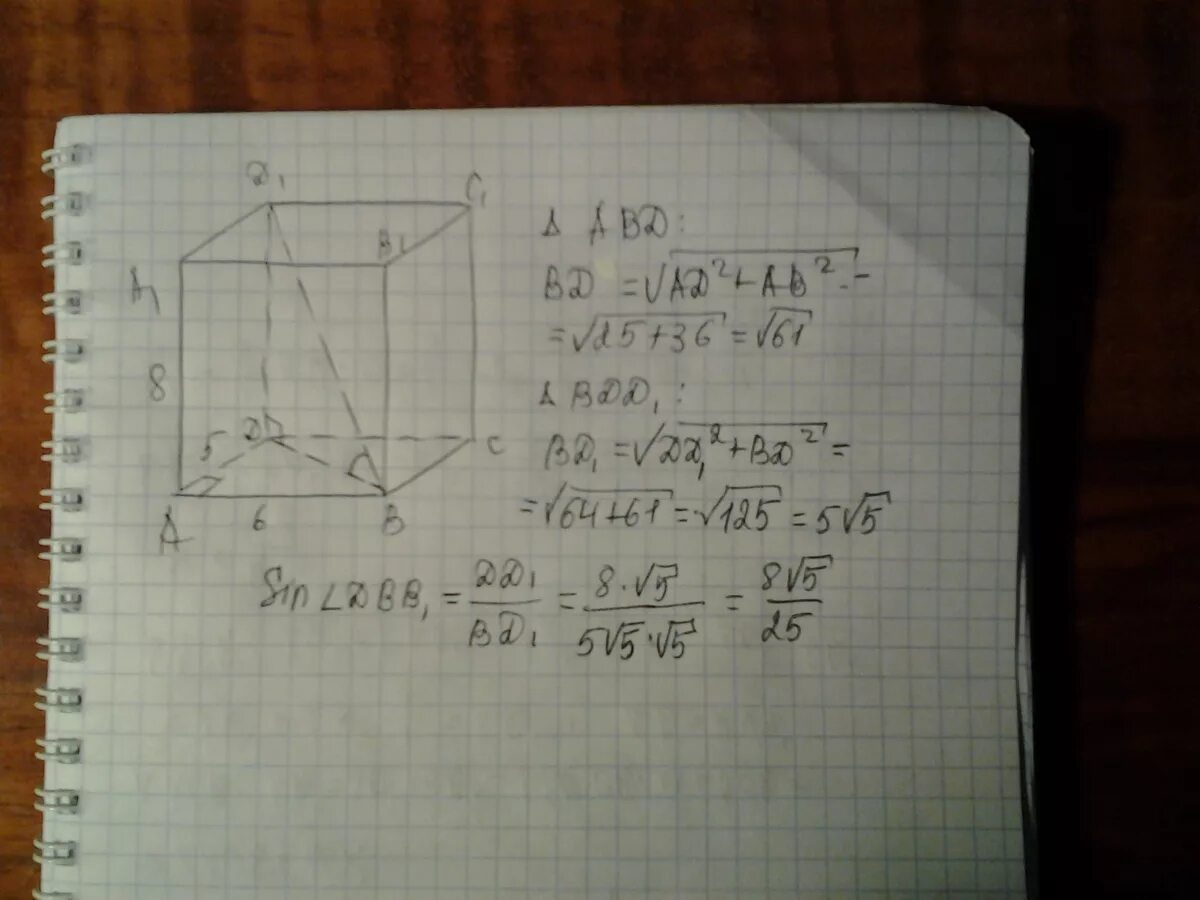 D₁ C₁
A₁ B₁
8
5 D C
A 6 B
Δ ABD:
BD = √AD² + AB² =
= √25 + 36 = √61
Δ BDD₁:
BD₁ = √DD₁² + BD² =
= √64 + 61 = √125 = 5√5
Sin ∠DBB₁ = DD₁/BD₁ = 8·√5/5√5·√5 = 8√5/25